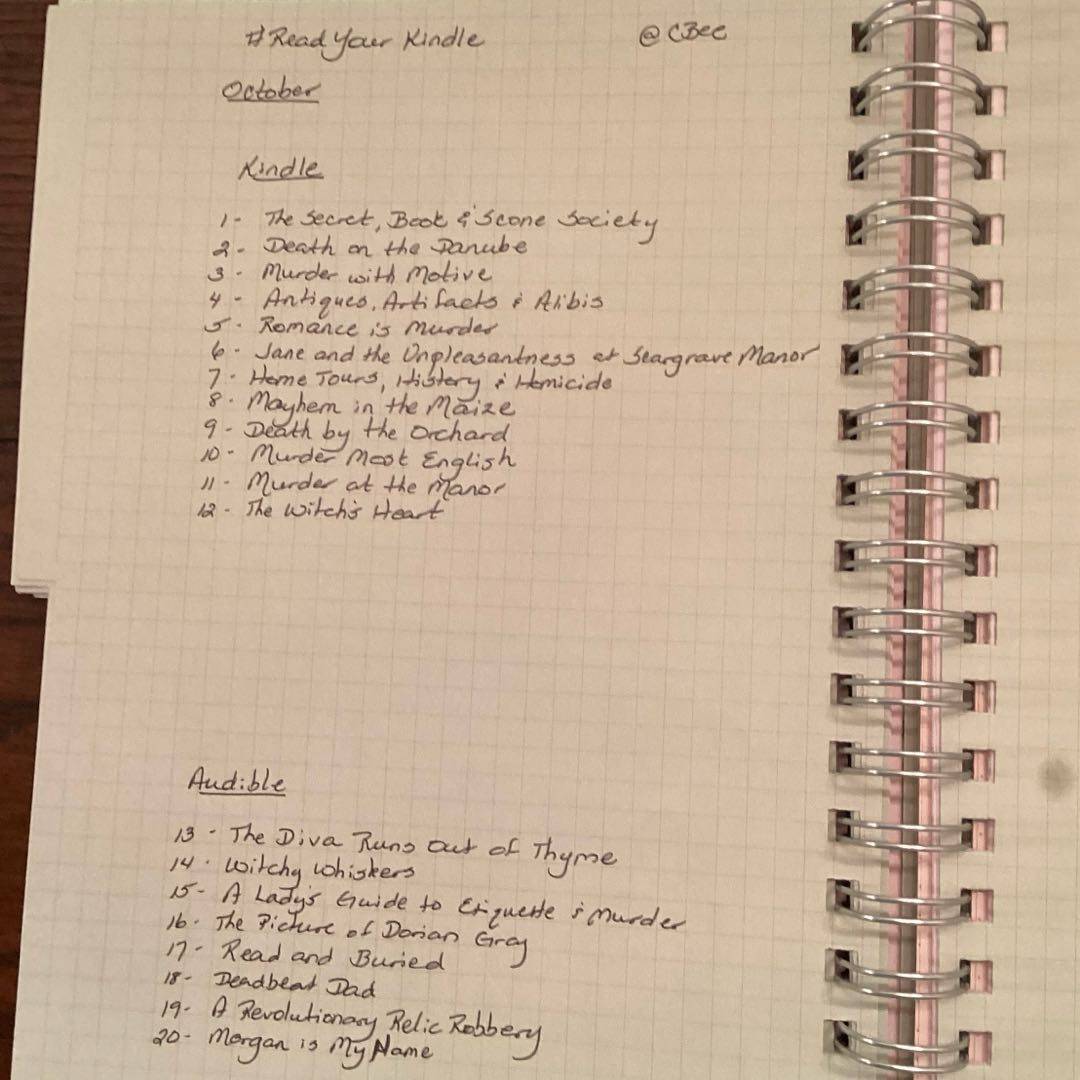 #ReadYourKindle @CBee
October
Kindle
1- The Secret, Book & Scone Society
2- Death on the Danube
3- Murder with Motive
4- Antiques, Artifacts & Alibis
5- Romance is Murder
6- Jane and the Unpleasantness at Scargrave Manor
7- Home Tours, History & Homicide
8- Mayhem in the Maize
9- Death by the Orchard
10- Murder Most English
11- Murder at the Manor
12- The Witch's Heart
Audible
13- The Diva Runs Out of Thyme
14- Witchy Whiskers
15- A Lady's Guide to Etiquette & Murder
16- The Picture of Dorian Gray
17- Read and Buried
18- Deadbeat Dad
19- A Revolutionary Relic Robbery
20- Morgan is My Name